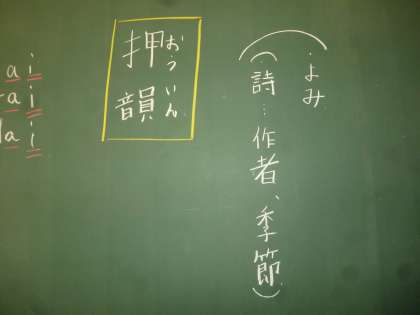 (・よみ
・詩…作者、季節)
おういん
押韻
a i
a i
a i